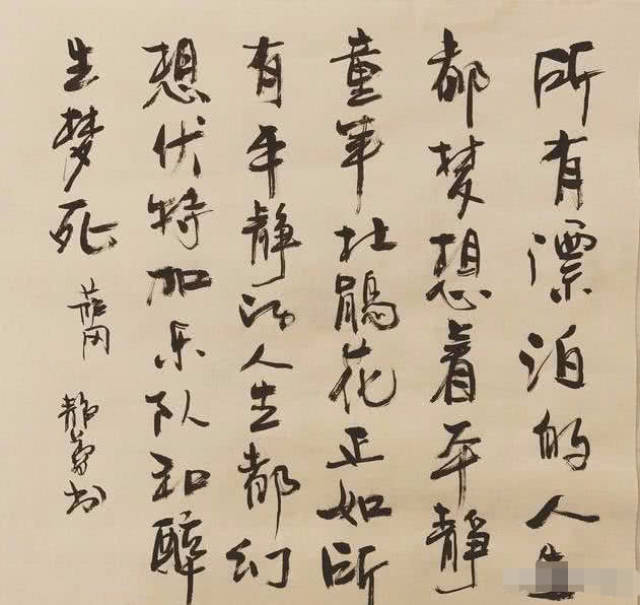 所有漂泊的人生
都梦想着平静
童年杜鹃花正如所
有平静的人生都幻
想伏特加乐队和醉
生梦死
静书